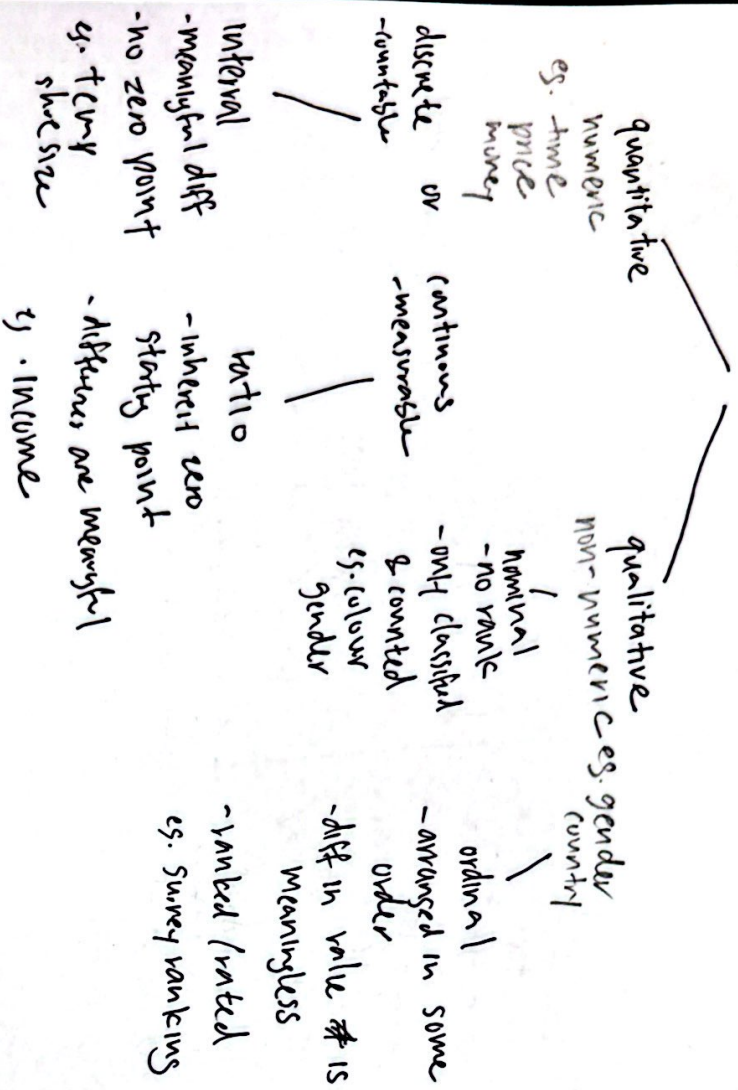 quantitative
numeric
eg. time
price
money
discrete or
-countable
continuous
-measurable
interval
-meaningful diff
-no zero point
eg. temp
shoe size
ratio
-inherent zero
starting point
-differences are meaningful
eg. income
qualitative
non-numeric eg. gender
country
nominal
-no rank
-only classified
& counted
eg. colour
gender
ordinal
-arranged in some
order
-diff in value is
meaningless
-ranked/rated
eg. survey ranking